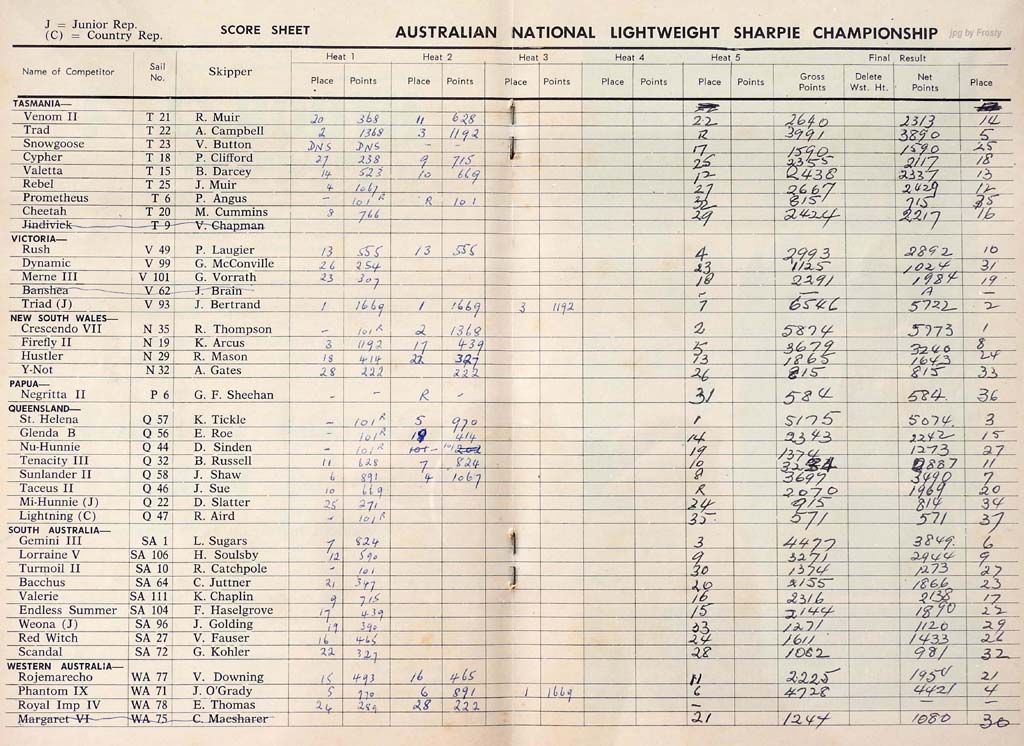 J = Junior Rep.
(C) = Country Rep.
SCORE SHEET AUSTRALIAN NATIONAL LIGHTWEIGHT SHARPIE CHAMPIONSHIP jpg by Frosty
Heat 1 Heat 2 Heat 3 Heat 4 Heat 5 Final Result
Name of Competitor Sail No. Skipper Place Points Place Points Place Points Place Points Place Points Gross Points Delete Wst. Ht. Net Points Place
TASMANIA—
Venom II T 21 R. Muir 20 368 11 628 22 2640 2313 14
Trad T 22 A. Campbell 2 1368 3 1192 R 3991 3890 5
Snowgoose T 23 V. Button DNS DNS - - 17 1590 1590 25
Cypher T 18 P. Clifford 27 238 9 715 25 2355 2117 18
Valetta T 15 B. Darcey 14 523 10 669 12 2438 2337 13
Rebel T 25 J. Muir 4 1067 27 2667 2429 12
Prometheus T 6 P. Angus - 101 R R 101 32 815 715
Cheetah T 20 M. Cummins 8 766 29 2424 2217 16
Jindivick T 9 V. Chapman
VICTORIA—
Rush V 49 P. Laugier 13 555 13 555 4 2993 2892 10
Dynamic V 99 G. McConville 26 254 23 1125 1024 31
Merne III V 101 G. Vorrath 23 307 18 2291 1984 19
Banshea V 62 J. Brain - - A -
Triad (J) V 93 J. Bertrand 1 1669 1 1669 3 1192 7 6546 5722 2
NEW SOUTH WALES—
Crescendo VII N 35 R. Thompson - 101 R 2 1368 2 5874 5773 1
Firefly II N 19 K. Arcus 3 1192 17 439 5 3679 3240 8
Hustler N 29 R. Mason 18 414 22 327 13 1865 1643 24
Y-Not N 32 A. Gates 28 222 222 26 815 815 33
PAPUA—
Negritta II P 6 G. F. Sheehan - - R - 31 584 584. 36
QUEENSLAND—
St. Helena Q 57 K. Tickle - 101 R 5 970 1 5175 5074 3
Glenda B Q 56 E. Roe - 101 R 414 14 2343 2242 15
Nu-Hunnie Q 44 D. Sinden - 101 R 101 - 101 202 19 1374 1273 27
Tenacity III Q 32 B. Russell 11 628 7 824 10 2887 11
Sunlander II Q 58 J. Shaw 6 891 4 1067 8 3697 3490 7
Taceus II Q 46 J. Sue 10 669 R 2070 1969 20
Mi-Hunnie (J) Q 22 D. Slatter 25 271 24 915 814 34
Lightning (C) Q 47 R. Aird - 101 R 35 571 571 37
SOUTH AUSTRALIA—
Gemini III SA 1 L. Sugars 7 824 3 4477 3849. 6
Lorraine V SA 106 H. Soulsby 12 590 9 3271 2944 9
Turmoil II SA 10 R. Catchpole - 101 30 1374 1273 27
Bacchus SA 64 C. Juttner 21 347 20 2155 1866 23
Valerie SA 111 K. Chaplin 9 715 16 2316 2138 17
Endless Summer SA 104 F. Haselgrove 17 439 15 2144 1890 22
Weona (J) SA 96 J. Golding 19 390 33 1271 1120 29
Red Witch SA 27 V. Fauser 16 465 24 1611 1433 26
Scandal SA 72 G. Kohler 22 327 28 1062 981 32
WESTERN AUSTRALIA—
Rojemarecho WA 77 V. Downing 15 493 16 465 11 2225 1954 21
Phantom IX WA 71 J. O'Grady 5 970 6 891 1 1669 6 4728 4421 4
Royal Imp IV WA 78 E. Thomas 24 289 28 222 - - -
Margaret VI WA 75 C. Maesharer 21 1247 1080 30